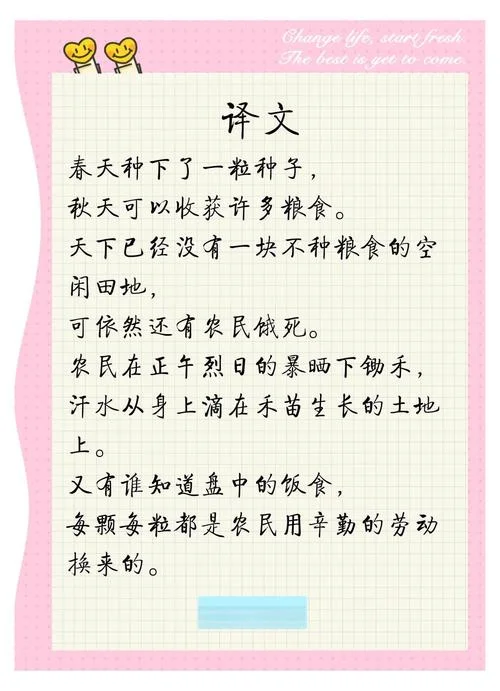 Change life, start fresh
The best is yet to come.
译文
春天种下了一粒种子，
秋天可以收获许多粮食。
天下已经没有一块不种粮食的空
闲田地，
可依然还有农民饿死。
农民在正午烈日的暴晒下锄禾，
汗水从身上滴在禾苗生长的土地
上。
又有谁知道盘中的饭食，
每颗每粒都是农民用辛勤的劳动
换来的。